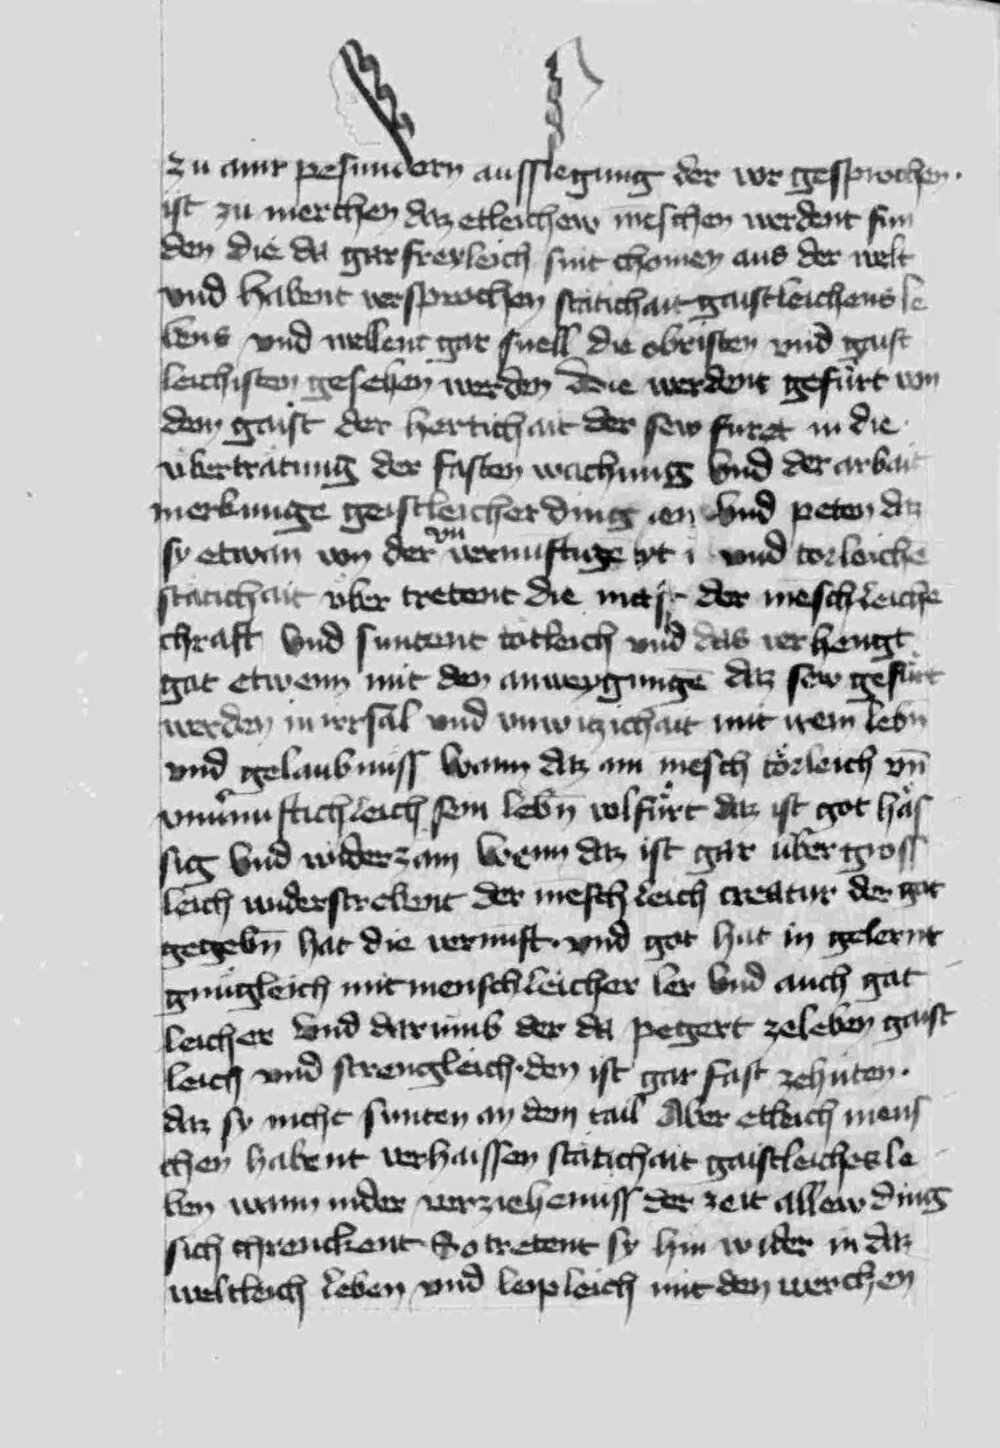 zu ainr pesundern ausslegung der vor gesprochen.
ist zu merchen daz etleichew meschen werdent fun
den die da gar freyleich sint chomen aus der welt
vnd habent versprochen statichait gaistleichens le
bens vnd wellent gar snell die obristen vnd gaist
leichisten gesehen werden Die werdent gefürt von
dem gaist der hertichait der sew füret in die
übertratung der fasten wachung vnd der arbait
merkunge geistleicher ding vnd peten daz
sy etwan von der vnuernuftige vnd torleiche
statichait über tretent die mass der meschleiche
chraft vnd suntent totleich vnd das verhengt
got etwenn mit den anweygunge daz sew gefürt
werden in irrsal vnd vnwiczichait mit irem lebn
vnd gelaubnuss Wann daz ain mesch törleich vn
vnuernuftichleich sein lebn volfürt daz ist got häs
sig vnd widerzam Wenn daz ist gar über gross
leich widerstrebent der meschleich creatur der got
gegebn hat die vernuft. vnd got hat in gelernt
gnügleich mit menschleicher ler vnd auch got
leicher vnd darumb der da pegert zeleben gaist
leich vnd strengleich. den ist gar fast zehüten.
daz sy nicht sunten an dem tail Aber etleich mens
chen habent verhaissen statichait gaistleiches le
ben wann in der verziehenuss der zeit allew ding
sich chrenckent So tretent sy hin wider in daz
weltleich leben vnd leipleich mit den werchen